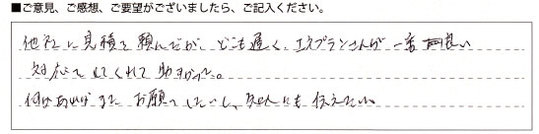 ■ご意見、ご感想、ご要望がございましたら、ご記入ください。
他社に見積を頼んだが、どこも遅く、エスプランさんが一番良い
対応をしてくれて助かった。
何かあればまたお願いしたいし、友人にも伝えたい。